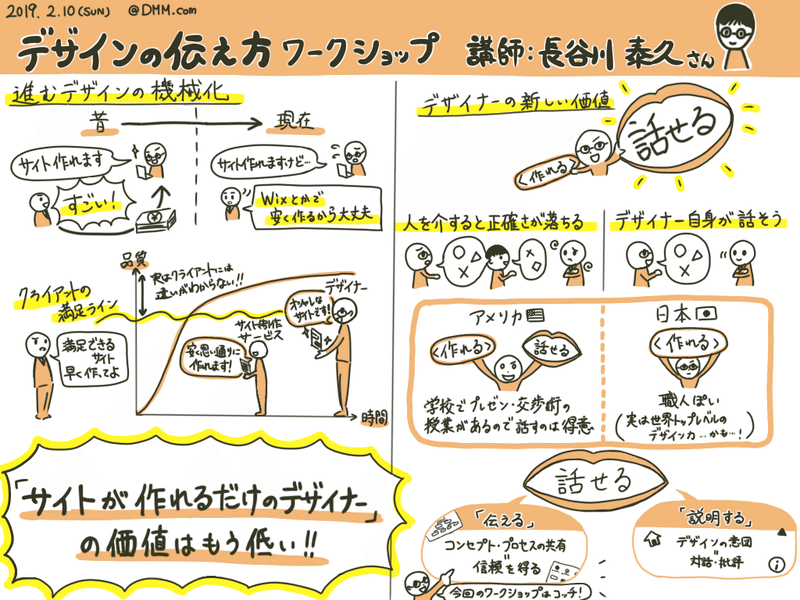 2019. 2.10 (SUN) @DMM.com
デザインの伝え方 ワークショップ 講師：長谷川 恭久さん
進むデザインの機械化
昔
現在
サイト作れます
すごい！
サイト作れますけど…
Wixとかで
安く作るから大丈夫
品質
実はクライアントには
違いがわからない！！
クライアントの
満足ライン
満足できる
サイト
早く作ってよ
サイト制作
サービス
安く思い通りに
作れます！
デザイナー
オシャレな
サイトです！
時間
「サイトが作れるだけのデザイナー」
の価値はもう低い！！
デザイナーの新しい価値
<作れる>
話せる
人を介すると正確さが落ちる
デザイナー自身が話そう
アメリカ
<作れる>
話せる
学校でプレゼン・交渉術の
授業があるので話すのは得意
日本
<作れる>
職人ぽい
(実は世界トップレベルの
デザイン力…かも…！)
話せる
「伝える」
コンセプト・プロセスの共有
信頼を得る
今回のワークショップはコッチ！
「説明する」
デザインの意図
対話・批評
i